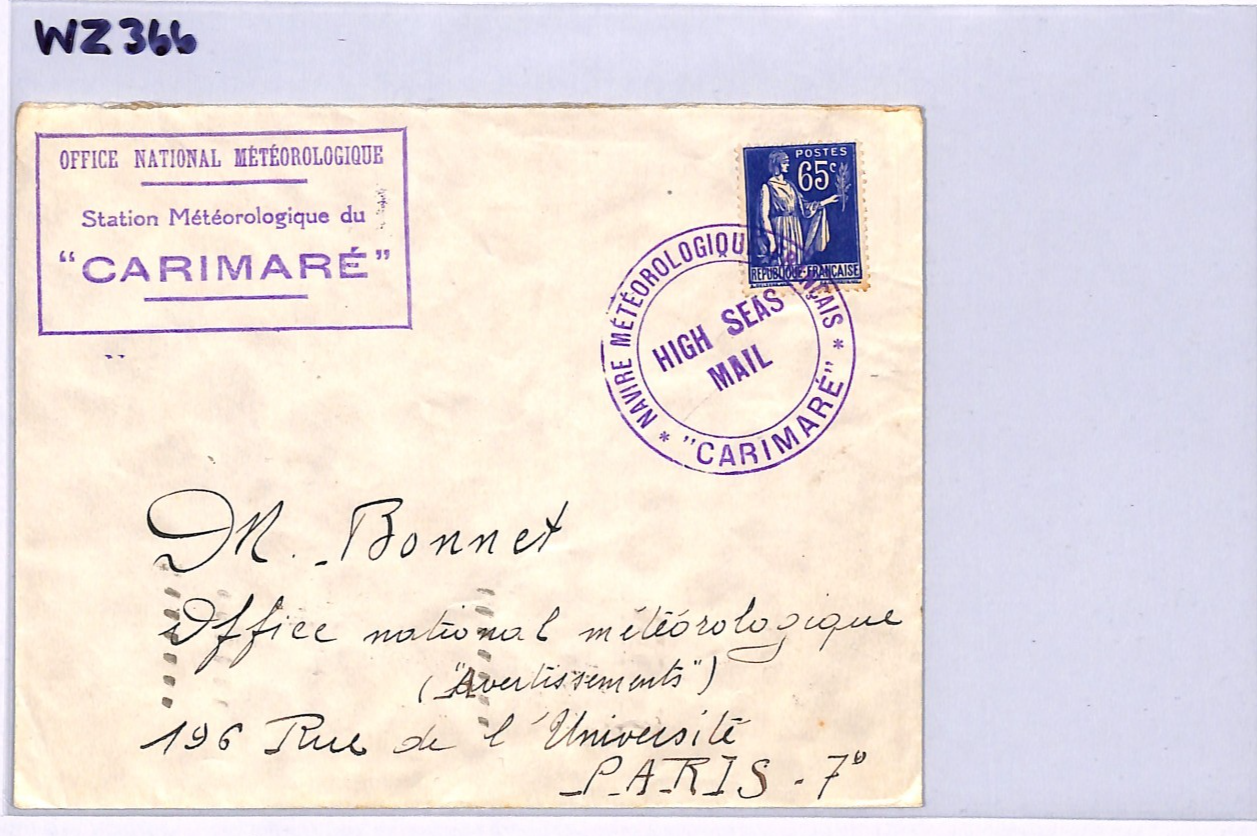 WZ366
OFFICE NATIONAL MÉTÉOROLOGIQUE
Station Météorologique du
"CARIMARÉ"
POSTES
65c
REPUBLIQUE·FRANÇAISE
* NAVIRE MÉTÉOROLOGIQUE FRANÇAIS *
HIGH SEAS
MAIL
"CARIMARÉ"
M. Bonnet
Office national météorologique
("Avertissements")
196 Rue de l'Université
PARIS - 7e